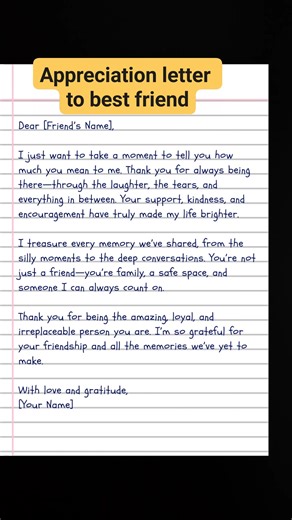 Appreciation letter
to best friend
Dear [Friend's Name],
I just want to take a moment to tell you how
much you mean to me. Thank you for always being
there—through the laughter, the tears, and
everything in between. Your support, kindness, and
encouragement have truly made my life brighter.
I treasure every memory we've shared, from the
silly moments to the deep conversations. You're not
just a friend—you're family, a safe space, and
someone I can always count on.
Thank you for being the amazing, loyal, and
irreplaceable person you are. I'm so grateful for
your friendship and all the memories we've yet to
make.
With love and gratitude,
[Your Name]